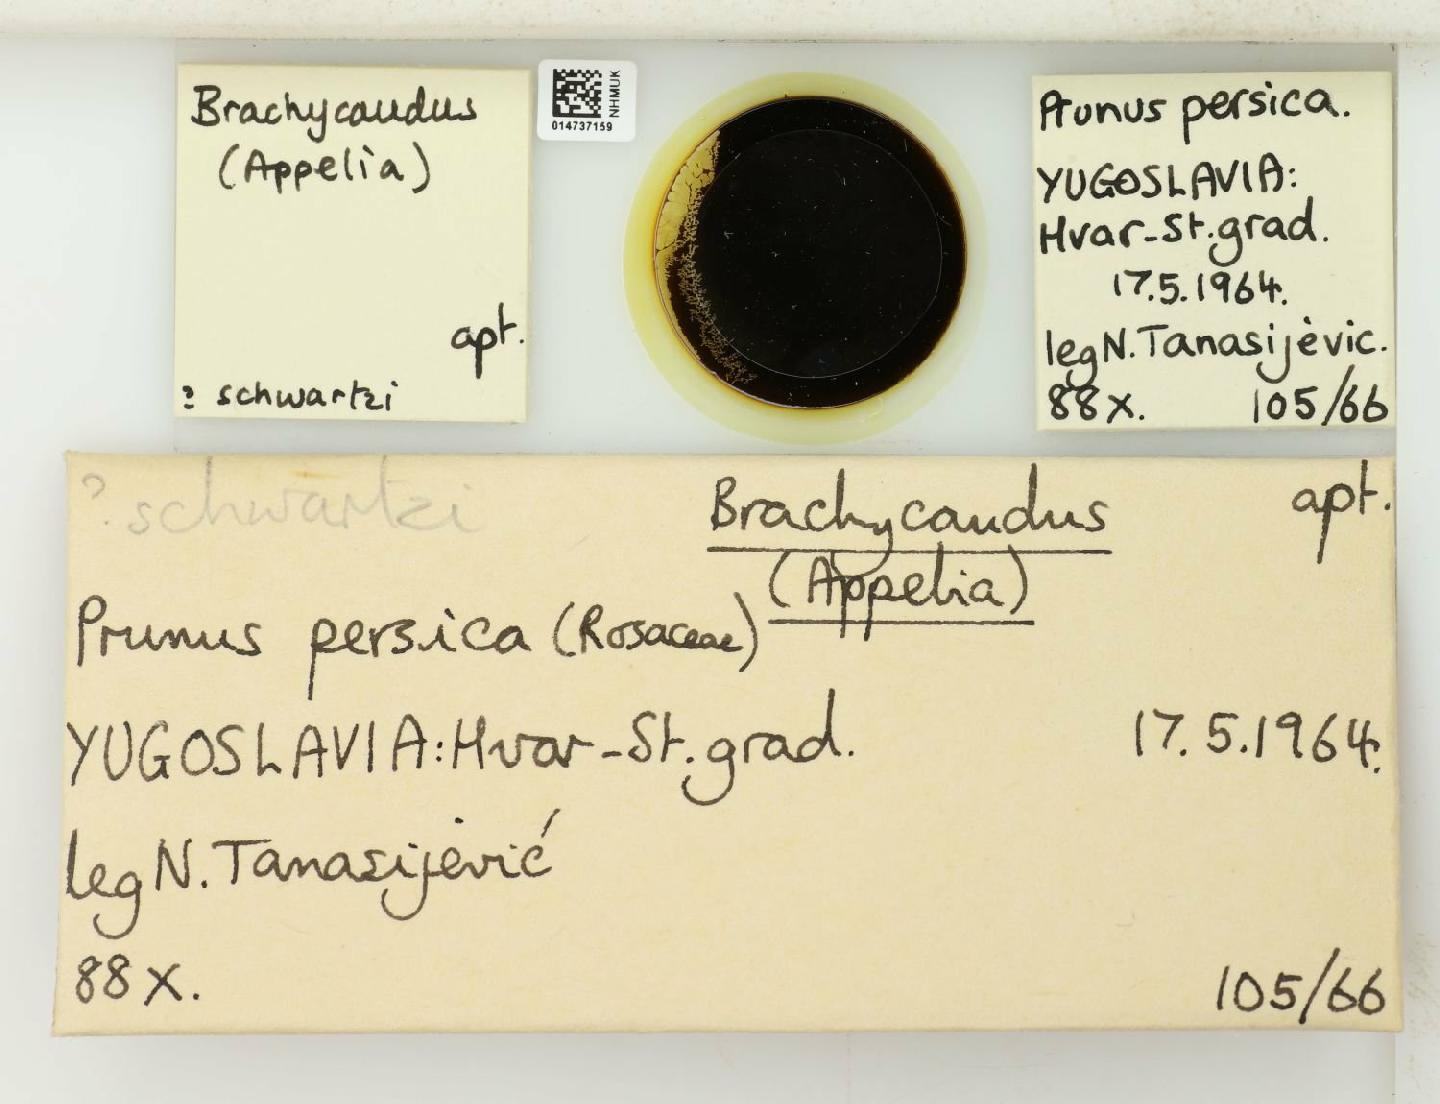 Brachycaudus
(Appelia)
apt.
? schwartzi
NHMUK
014737159
Prunus persica.
YUGOSLAVIA:
Hvar-St.grad.
17.5.1964.
leg N. Tanasijèvic.
88x. 105/66
? schwartzi
Brachycaudus apt.
(Appelia)
Prunus persica (Rosaceae)
YUGOSLAVIA: Hvar-St.grad. 17.5.1964.
leg N. Tanasijević
88x.
105/66